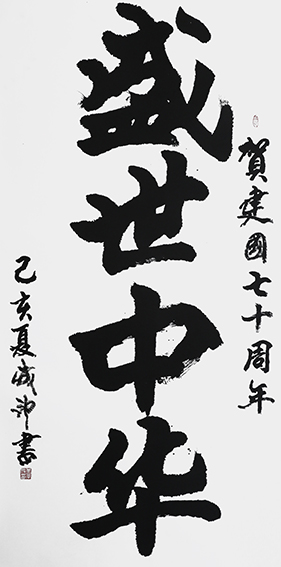 贺建國七十周年
盛世中华
己亥夏成沖書